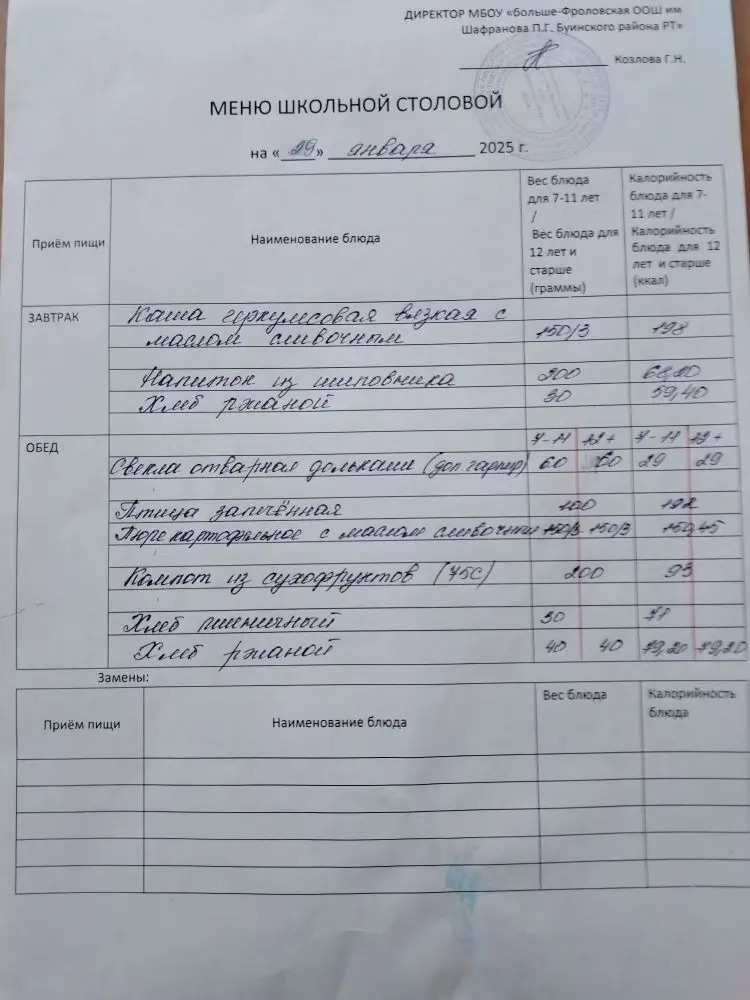 ДИРЕКТОР МБОУ «больше-Фроловская ООШ им
Шафранова П.Г. Буинского района РТ»
Козлова Г.Н.
МЕНЮ ШКОЛЬНОЙ СТОЛОВОЙ
на «29» января 2025 г.
Приём пищи
Наименование блюда
Вес блюда
для 7-11 лет
/
Вес блюда для
12 лет и
старше
(граммы)
Калорийность
блюда для 7-
11 лет /
Калорийность
блюда для 12
лет и старше
(ккал)
ЗАВТРАК
Каша геркулесовая вязкая с
маслом сливочным 150/3 198
Напиток из шиповника 200 68,20
Хлеб ржаной 30 59,40
ОБЕД 7-11 12+ 7-11 12+
Свекла отварная дольками (доп гарнир) 60 60 29 29
Птица запечённая 100 192
Пюре картофельное с маслом сливочным 150/3 150/3 150,45
Компот из сухофруктов (75С) 200 93
Хлеб пшеничный 30 71
Хлеб ржаной 40 40 79,20 79,20
Замены:
Приём пищи
Наименование блюда
Вес блюда
Калорийность
блюда